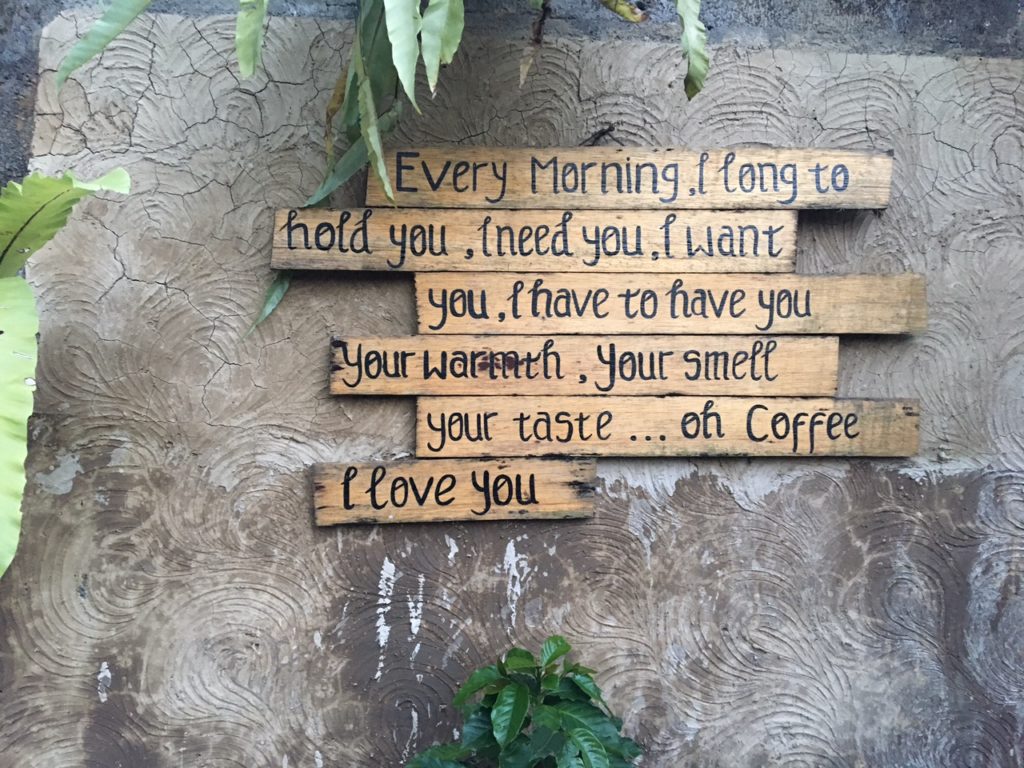 Every Morning, I long to
hold you, I need you, I want
you, I have to have you
Your warmth, Your smell
your taste ... oh Coffee
I love you